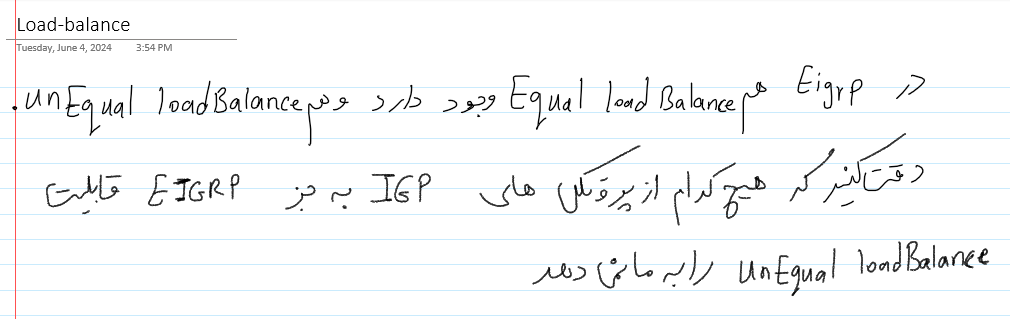 Load-balance
Tuesday, June 4, 2024 3:54 PM
در Eigrp هم Equal load Balance وجود دارد و هم unEqual loadBalance.
دقت کنید که هیچ کدام از پروتکل های IGP به جز EIGRP قابلیت
unEqual loadBalance را به ما نمی دهد